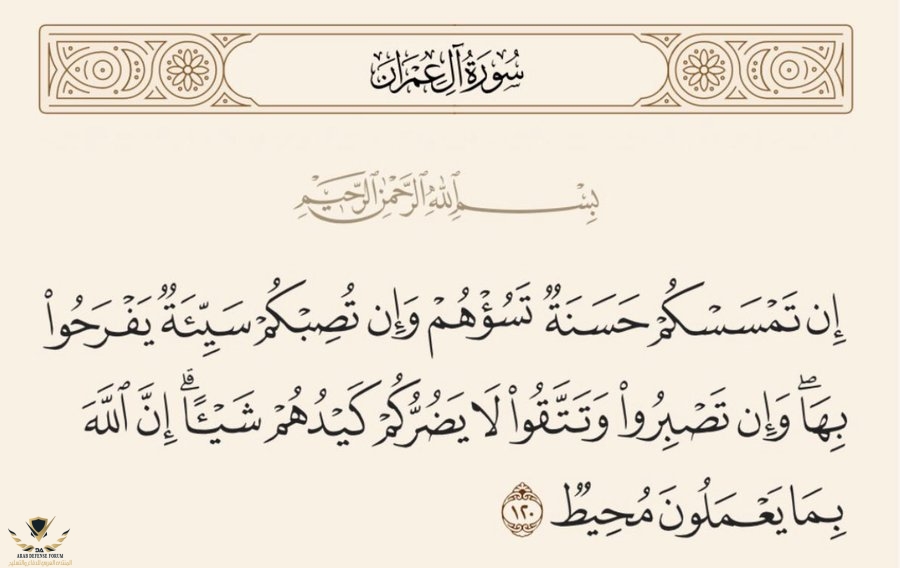 سُورَةُ آلِ عِمْرَانَ
بِسْمِ ٱللَّهِ ٱلرَّحْمَٰنِ ٱلرَّحِيمِ
إِن تَمْسَسْكُمْ حَسَنَةٌ تَسُؤْهُمْ وَإِن تُصِبْكُمْ سَيِّئَةٌ يَفْرَحُوا۟
بِهَا ۖ وَإِن تَصْبِرُوا۟ وَتَتَّقُوا۟ لَا يَضُرُّكُمْ كَيْدُهُمْ شَيْـًٔا ۗ إِنَّ ٱللَّهَ
بِمَا يَعْمَلُونَ مُحِيطٌ ١٢٠
DA
ARAB DEFENSE FORUM
المنتدى العربي للدفاع والتسليح